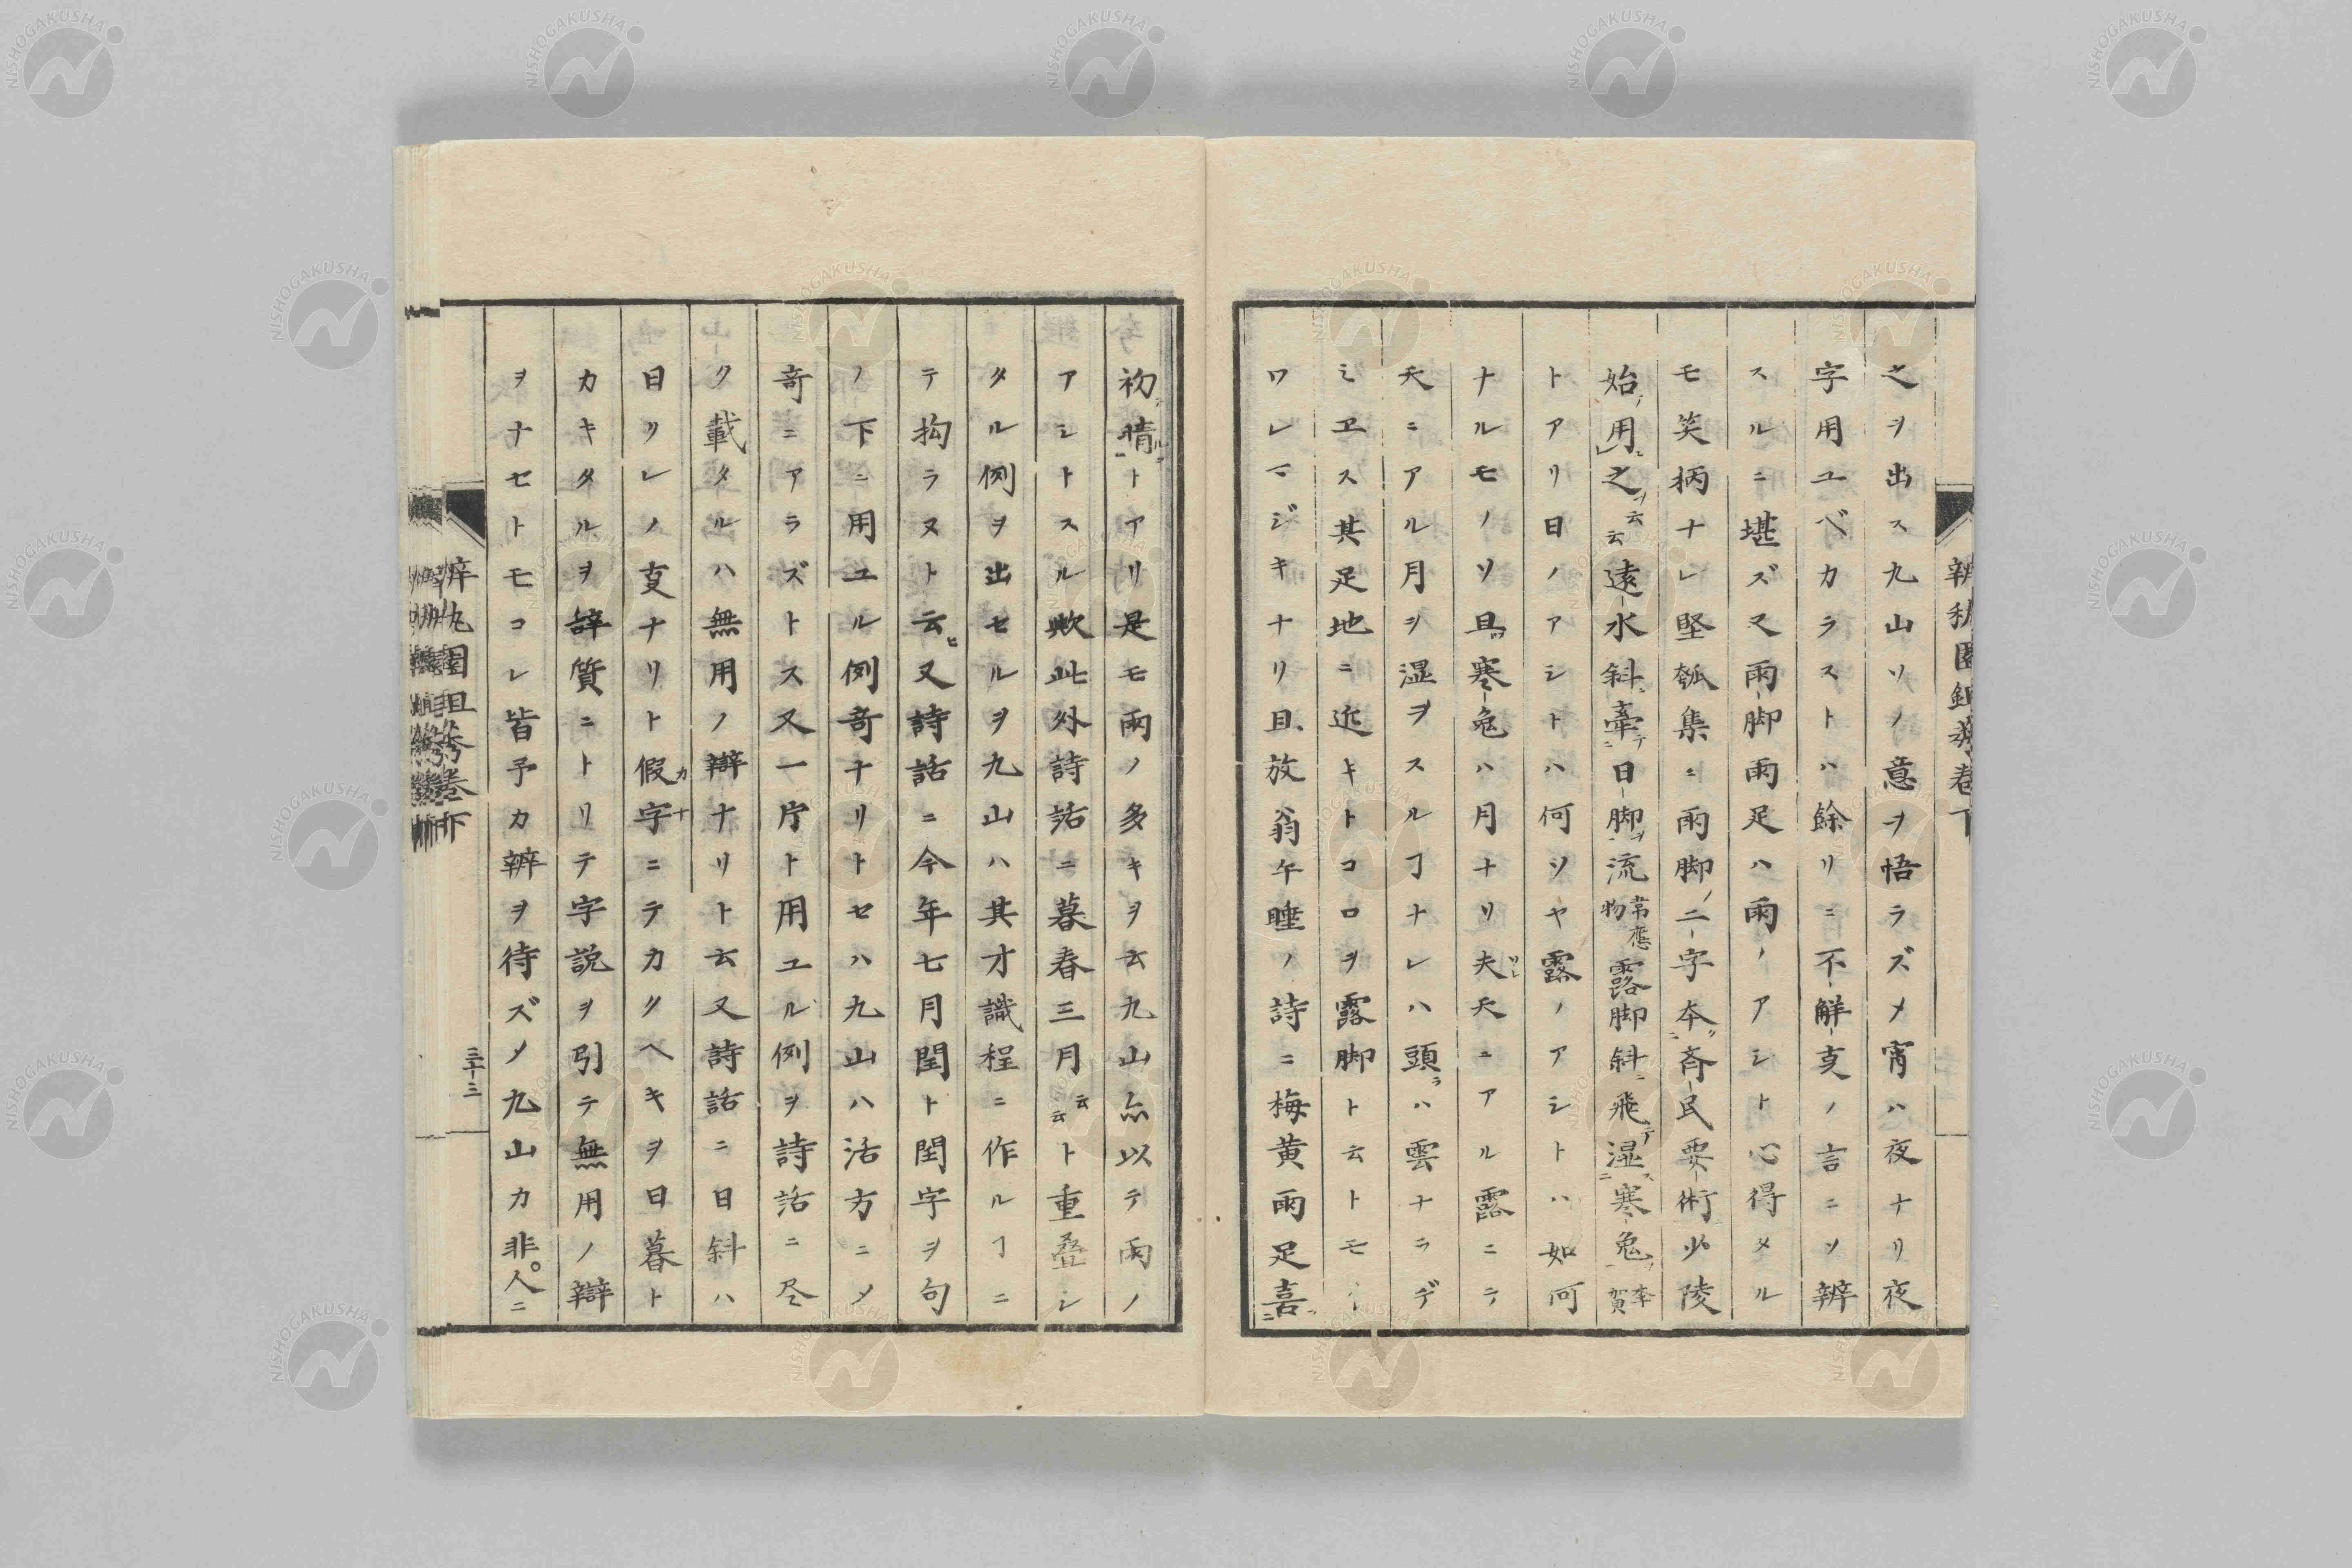 之ヲ出ス九山ソノ意ヲ悟ラズメ宵ハ夜ナリ夜
字用ユベカラストハ餘リニ不解支ノ言ニソ辨
スルニ堪ズ又雨脚雨足ハ雨ノアシト心得メル
モ笑柄ナレ堅瓠集ニ雨脚ノ二字本斉民要術少陵
始用之云云遠水斜牽日脚流常應物露脚斜飛湿寒兔李賀
トアリ日ノアシトハ何ソヤ露ノアシトハ如何
ナルモノソ且寒兔ハ月ナリ夫天ニアル露ニテ
天ニアル月ヲ湿ヲスルヿナレハ頭ハ雲ナラデ
ミヱス其足地ニ近キトコロヲ露脚ト云トモ
ワレマジキナリ且放翁午睡ノ詩ニ梅黄雨足喜
初晴トアリ是モ雨ノ多キヲ云九山亦以テ雨ノ
アシトスル歟此外詩話ニ暮春三月云云ト重叠シ
タル例ヲ出セルヲ九山ハ其才識程ニ作ルヿニ
テ拘ラヌト云又詩話ニ今年七月閏ト閏字ヲ句
ノ下ニ用ユル例奇ナリトセハ九山ハ活方ニメ
奇ニアラズトス又一片ト用ユル例ヲ詩話ニ尽
ク載タルハ無用ノ辯ナリト云又詩話ニ日斜ハ
日クレノ支ナリト假字ニテカクヘキヲ日暮ト
カキタルヲ辞質ニトリテ字説ヲ引テ無用ノ辯
ヲナセトモコレ皆予カ辨ヲ待ズメ九山カ非人ニ
三十三